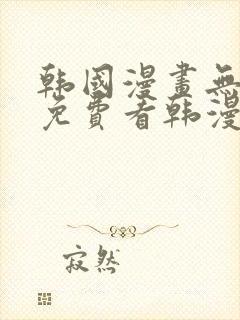 韩國漫畫無
免費看韩漫
寂然